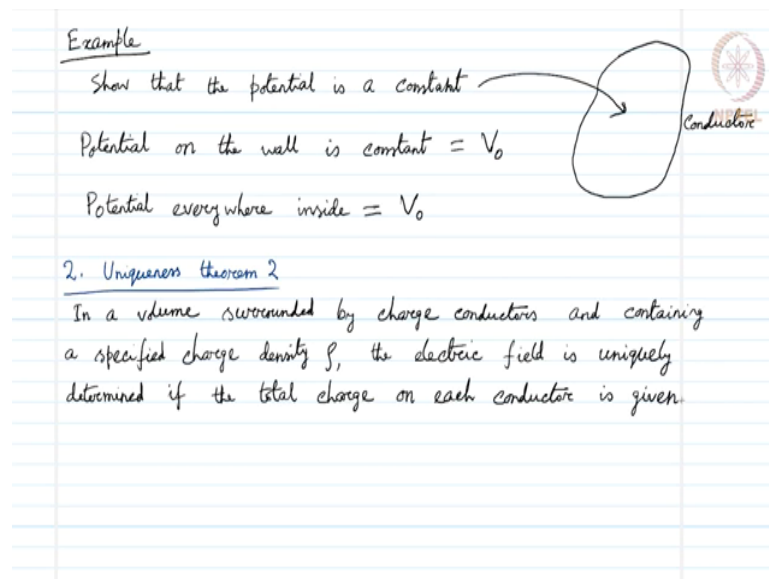 Example
Show that the potential is a constant
Conductor
NPTEL
Potential on the wall is constant = V₀
Potential everywhere inside = V₀
2. Uniqueness theorem 2
In a volume surrounded by charge conductors and containing
a specified charge density ρ, the electric field is uniquely
determined if the total charge on each conductor is given.